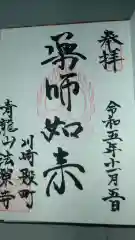 奉拝
令和五年十一月五日
薬師如来
川崎殿町
青龍山法栄寺